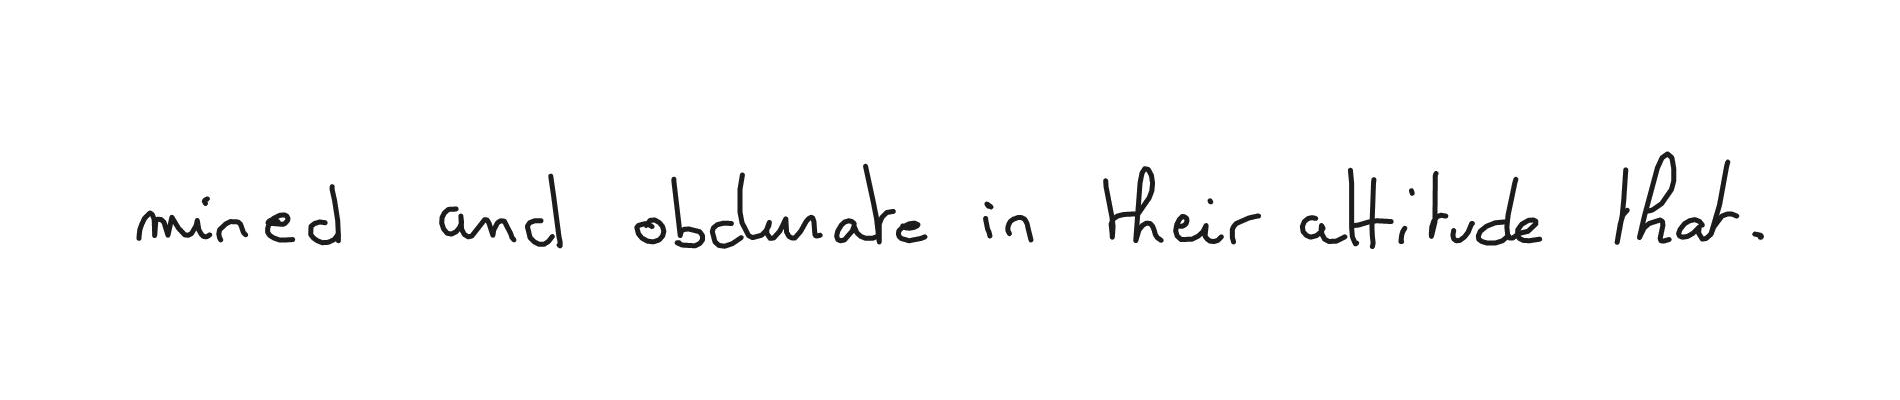 mined and obdurate in their attitude that.